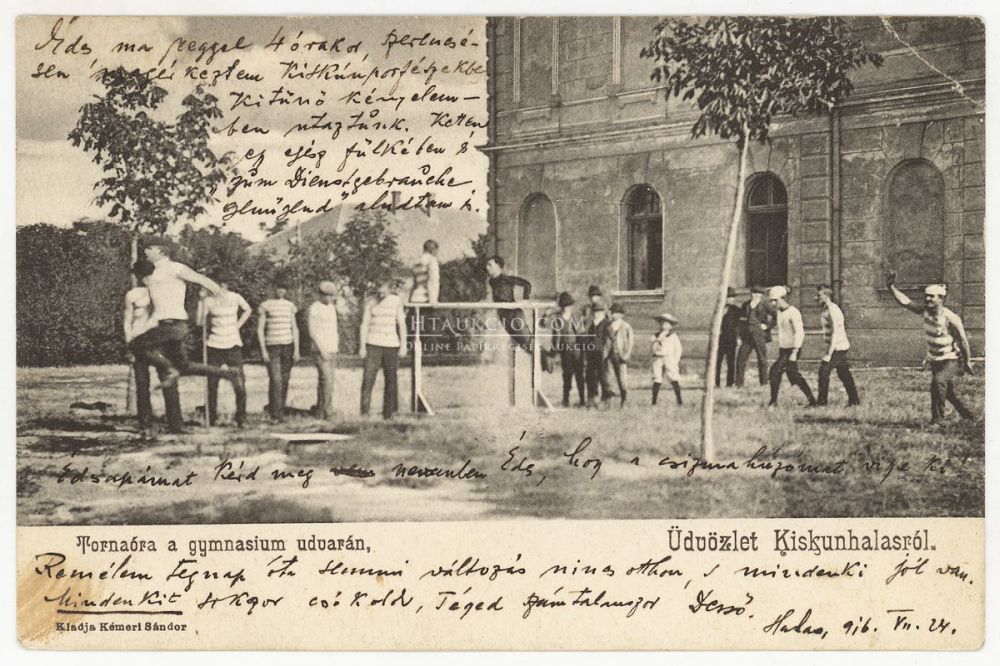 Édes ma reggel 4 órakor, szerencsé-
sen megérkeztem
Kitünő kényelem-
ben utaztunk. Ketten
egész fülkében s
"zum Dienstgebrauche
genügend" aludtam is.
HTAUKCIO.COM
Online Papírrégiség Aukció
Édsapámat kérd meg nevemben Éds, hogy a csizmahúzómat vigye ki
Tornaóra a gymnasium udvarán,
Üdvözlet Kiskunhalasról.
Remélem tegnap óta semmi változás nincs otthon, s mindenki jól van.
Mindenkit sokszor csókoló, Téged számtalanszor Dezső.
Kiadja Kémeri Sándor
Halas, 916. VII. 24.